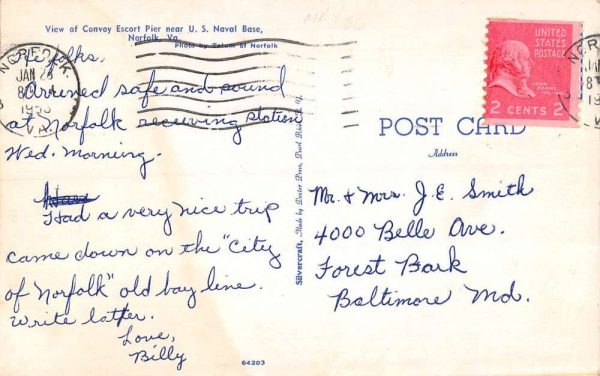 View of Convoy Escort Pier near U. S. Naval Base,
Norfolk, Va.
Photo by Tatum of Norfolk
NORFOLK,
JAN 28
VA.
Hi folks,
Arrived safe and sound
at Norfolk receiving station
Wed. Morning.
Had a very nice trip
came down on the "City
of Norfolk" old bay line.
Write latter.
Love,
Billy
64203
Silvercraft, Made by Dexter Press, Pearl River, N. Y.
UNITED
STATES
POSTAGE
JOHN
ADAMS
2 CENTS 2
NORFOLK
POST CARD
Address
Mr. & Mrs. J. E. Smith
4000 Belle Ave.
Forest Bark
Baltimore Md.